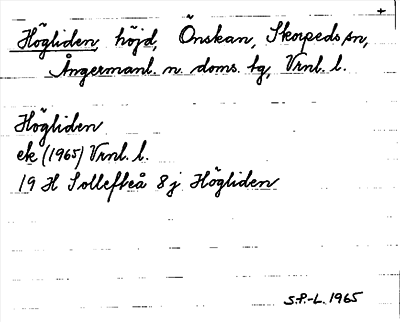 +
Högliden, höjd, Önskan, Skorpeds sn,
Ångermanl. n. doms. tg, Vrnl. l.
Högliden
ek (1965) Vrnl. l.
19 H Sollefteå 8 j Högliden
S.P.-L. 1965